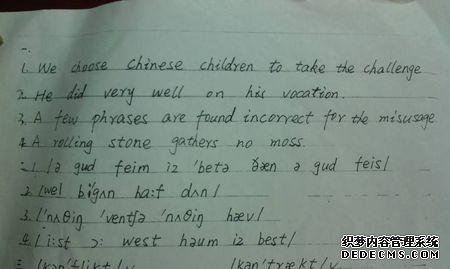 一.
1. We choose Chinese children to take the challenge
2. He did very well on his vocation.
3. A few phrases are found incorrect for the misusage
4. A rolling stone gathers no moss.
二.1. /ə gud feim iz 'betə ðæn ə gud feis/
2. /wel bi'gʌn ha:f dʌn/
3. /'nʌθiŋ 'ventʃə 'nʌθiŋ hæv/
4. /i:st ɔ: west həum iz best/
三. /kən'flikt/ v. /kən'trækt/ v.
织梦内容管理系统
DEDECMS.COM